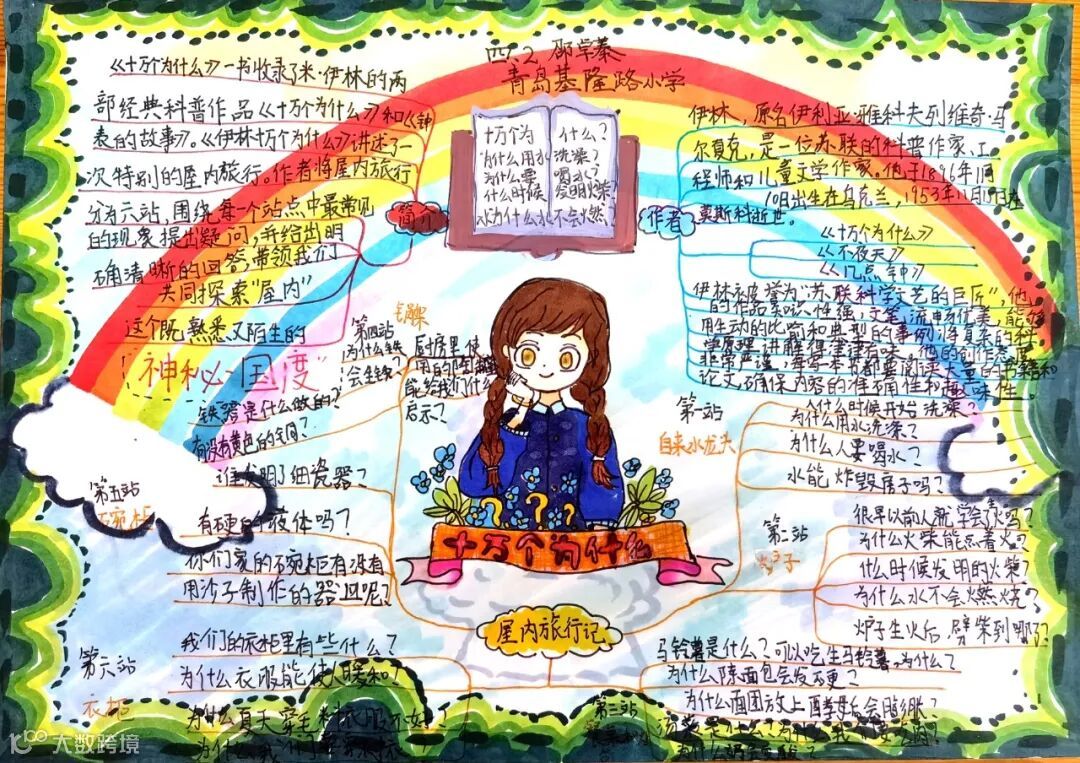 四.2
青岛基隆路小学
《十万个为什么》一书收录了米·伊林的两
部经典科普作品《十万个为什么》和《钟
表的故事》。《伊林十万个为什么》讲述了一
次特别的屋内旅行。作者将屋内旅行
分为六站，围绕每一个站点中最常见
的现象提出疑问，并给出明
确清晰的回答，带领我们
共同探索“屋内”
这个既熟悉又陌生的
“神秘国度”
简介
十万个为什么？
为什么用水洗澡？
为什么要喝水？
什么时候发明火柴？
为什么水不会燃？
作者
伊林，原名伊利亚·雅科夫列维奇·马
尔夏克，是一位苏联的科普作家、工
程师和儿童文学作家。他于1896年1月
10日出生在乌克兰，1953年11月15日在
莫斯科逝世。
《十万个为什么》
《不夜天》
《几点钟》
伊林被誉为“苏联科学文艺的巨匠”，他
的作品知识性强，文笔流畅优美，能够
用生动的比喻和典型的事例，将复杂的科
学原理讲解得津津有味。他的创作态度
非常严谨，每写一本书都要阅读大量的书籍和
论文，确保内容的准确性和趣味性。
第一站
自来水龙头
什么时候开始洗澡？
为什么用水洗澡？
为什么人要喝水？
水能炸毁房子吗？
第二站
炉子
很早以前人就学会了火吗？
为什么火柴能点着火？
什么时候发明的火柴？
为什么水不会燃烧？
炉子生火后，劈柴到哪了？
第三站
马铃薯是什么？可以吃生马铃薯，为什么？
为什么陈面包会发硬？
为什么面团放上酵母会膨胀？
第四站
为什么铁
会生锈？
厨房里使
用的
能给我们什么
启示？
铁器是什么做的？
有没有黄色的
第五站
碗柜
谁发明了细瓷器？
有硬的液体吗？
你们家的碗柜有没有
用沙子制作的器皿呢？
第六站
衣柜
我们的衣柜里有些什么？
为什么衣服能使人暖和？
为什么夏天穿
十万个为什么
屋内旅行记
大数跨境